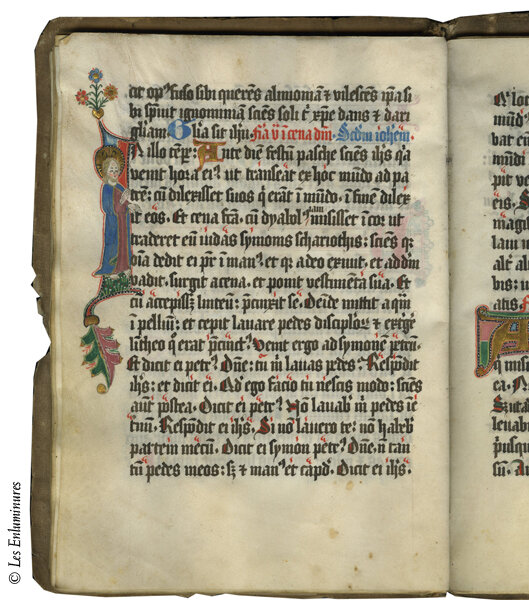 cit op' fuso sibi querēs alimoniā & vilescēs ip̄a si
bi spuit ignominiā sciēs soli t' xp̄e dans & dari
gliam Glia sit ihu Fa v i cena dni. Scdm iohem
N illo tēpr: Ante diē festū pasche sciēs ihs qa
venit hora ei' ut trāseat ex hoc mūdo ad pa
trē: cū dilexisset suos q̄ erāt ī mūdo. ī finē dilex
it eos. Et cena fcā. cū dyabol' iam misisset ī cor ut
traderet eū iudas symonis schariothis: sciēs qr
oīa dedit ei pr ī man' et qr a deo exivit. et ad dm̄
vadit. surgit a cena. et ponit vestimēta sua. Et
cū accepiss; linteū: p̄cinxit se. Deīde mittit aquā
ī pelvim: et cepit lavare pedes disciplor & exterge
lītheo q̄ erat p̄cīct'. Venit ergo ad symonē petrū.
Et dicit ei petr'. Dn̄e: tu m lavas pedes. Respōdit
ihs: et dicit ei. Qd ego facio tu nescis modo: scies
aut̄ postea. Dicit ei petr'. Nō lavab m pedes ī et
nū. Respōdit ei ihs. Si nō lavero te: nō habeb
partem mecū. Dicit ei symon petr'. Dn̄e. n tan
tū pedes meos: s; & man' et cap d. Dicit ei ihs.
© Les Enluminures